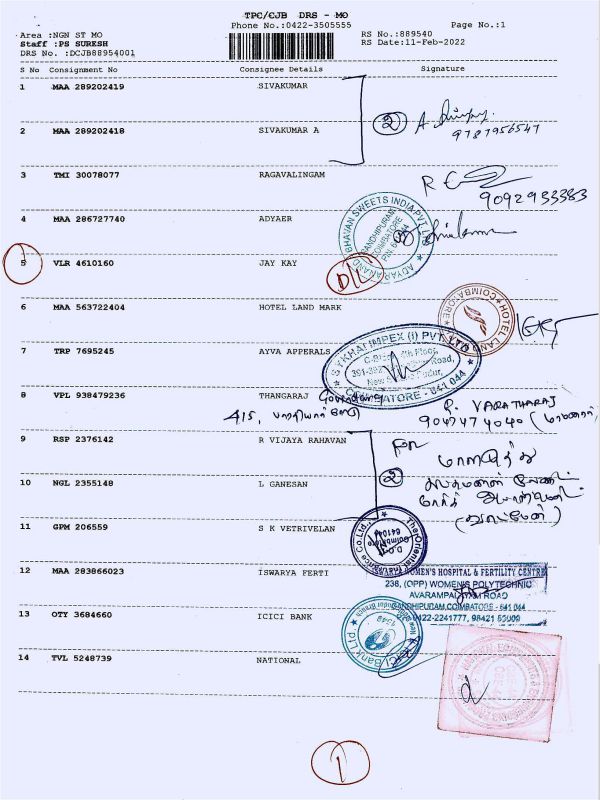 TPC/CJB DRS - MO
Phone No.:0422-3505555
Page No.:1
Area :NGN ST MO
RS No.:889540
Staff :PS SURESH
RS Date:11-Feb-2022
DRS No. :DCJB88954001
S No Consignment No Consignee Details Signature
1 MAA 289202419 SIVAKUMAR
2 MAA 289202418 SIVAKUMAR A
2
9787956547
3 TMI 30078077 RAGAVALINGAM
9092933383
4 MAA 286727740 ADYAER
ADYAR ANANDA BHAVAN SWEETS INDIA PVT LTD
GANDHIPURAM
COIMBATORE
5 VLR 4610160 JAY KAY
D/L
6 MAA 563722404 HOTEL LAND MARK
HOTEL LAND MARK
COIMBATORE
7 TRP 7695245 AYVA APPERALS
IMPEX (I) PVT
COIMBATORE - 641 044
8 VPL 938479236 THANGARAJ
415,
VARATHARAJ
9047474040
9 RSP 2376142 R VIJAYA RAHAVAN
For
10 NGL 2355148 L GANESAN
2
11 GPM 206559 S K VETRIVELAN
The Oriental Insurance Co.Ltd.
Coimbatore
12 MAA 283866023 ISWARYA FERTI
WOMEN'S HOSPITAL & FERTILITY CENTRE
236, (OPP) WOMEN'S POLYTECHNIC
AVARAMPALAYAM ROAD
GANDHIPURAM, COIMBATORE - 641 044
0422-2241777, 98421 53009
13 OTY 3684660 ICICI BANK
ICICI Bank Ltd
14 TVL 5248739 NATIONAL
1